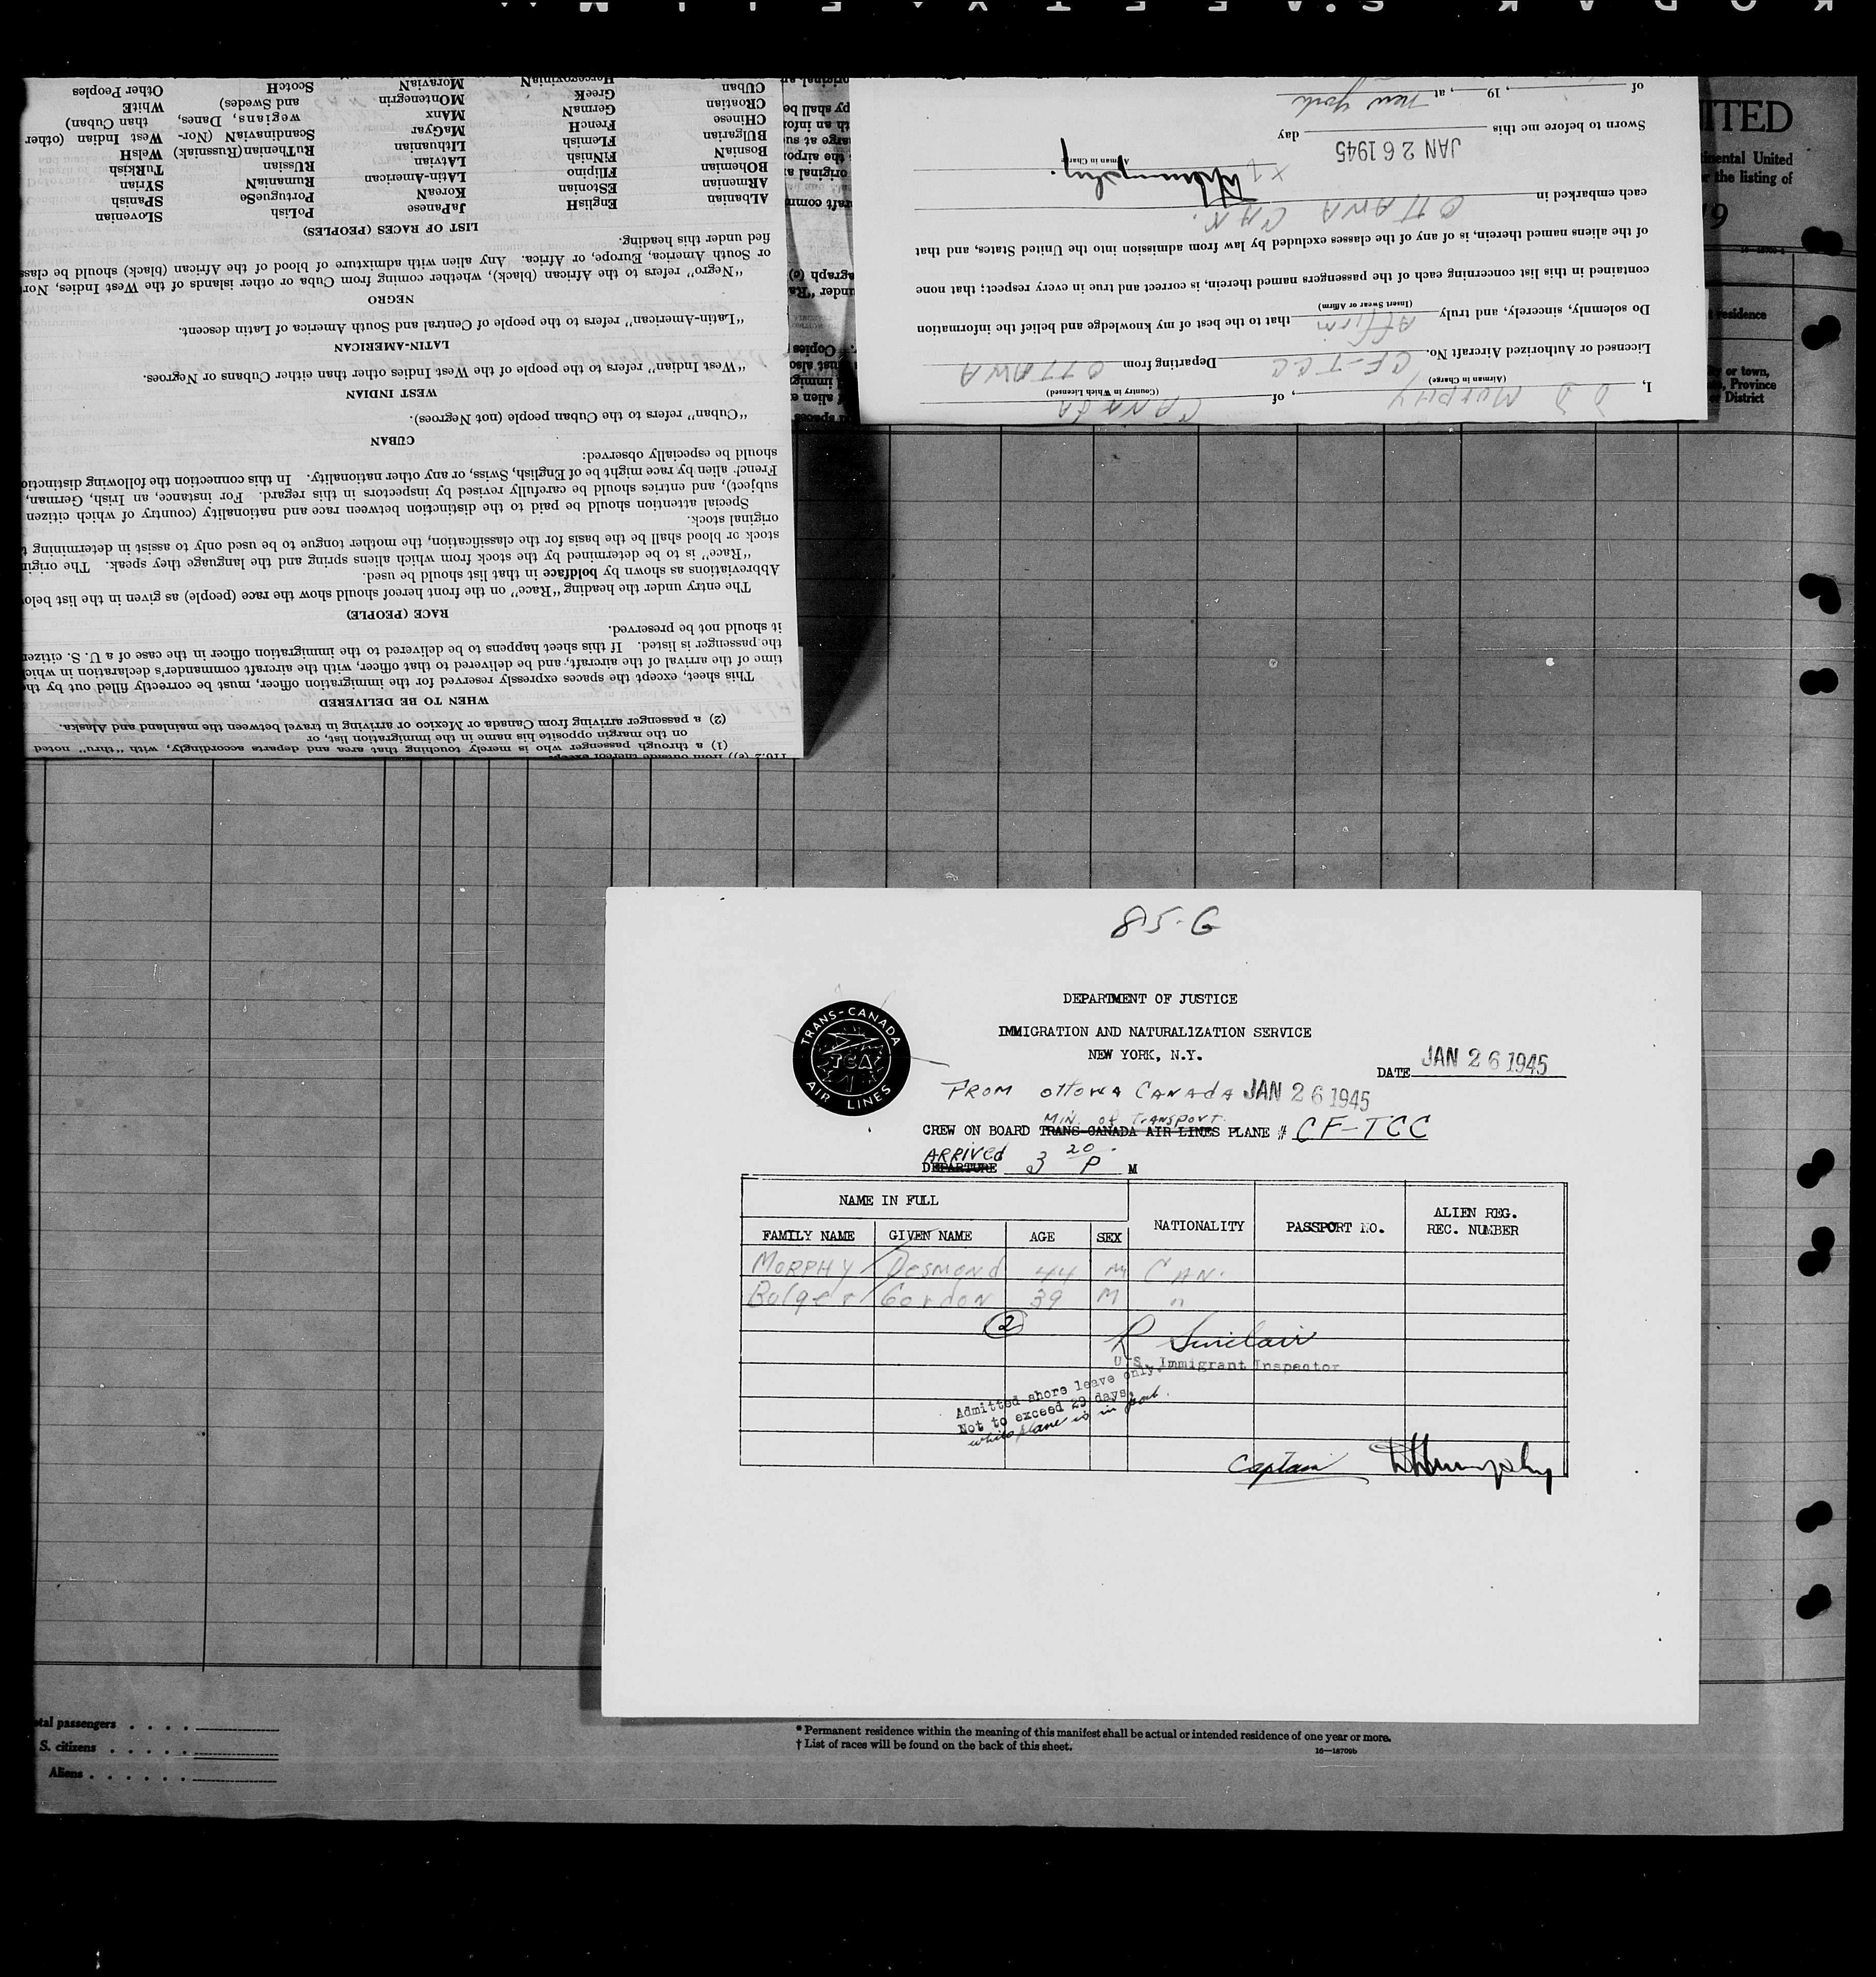 KODAK SAFETY FILM
Other Peoples
WhitE
West Indian (other
than Cuban)
WelsH
TuRkish
SYrian
SPanish
SLovenian
ScotcH
ScandinaviaN (Nor-
wegians, Danes,
and Swedes)
RuThenian (Russniak)
RUssian
RumaniaN
PortugueSe
PoLish
MoraviaN
MOntenegrin
MAnx
MaGyar
LIthuanian
LAtvian
LAtin-American
KoreaN
JaPanese
HercegoviniaN
GreeK
GermaN
FrencH
FLemish
FiNnish
FIlipino
EStonian
EnglisH
CUban
CRoatian
CHinese
BUlgarian
BosniaN
BOhemian
ARmenian
ALbanian
LIST OF RACES (PEOPLES)
fied under this heading.
or South America, Europe, or Africa. Any alien with admixture of blood of the African (black) should be
"Negro" refers to the African (black), whether coming from Cuba or other islands of the West Indies,
NEGRO
"Latin-American" refers to the people of Central and South America of Latin descent.
LATIN-AMERICAN
"West Indian" refers to the people of the West Indies other than either Cubans or Negroes.
WEST INDIAN
"Cuban" refers to the Cuban people (not Negroes).
CUBAN
should be especially observed:
French alien by race might be of English, Swiss, or any other nationality. In this connection the following
subject), and entries should be carefully revised by inspectors in this regard. For instance, an Irish, German,
Special attention should be paid to the distinction between race and nationality (country of which
original stock.
stock or blood shall be the basis for the classification, the mother tongue to be used only to assist in determining
"Race" is to be determined by the stock from which aliens spring and the language they speak. The
Abbreviations as shown by boldface in that list should be used.
The entry under the heading "Race" on the front hereof should show the race (people) as given in the list
RACE (PEOPLE)
it should not be preserved.
the passenger is listed. If this sheet happens to be delivered to the immigration officer in the case of a U. S.
time of the arrival of the aircraft, and be delivered to that officer, with the aircraft commander's declaration in
This sheet, except the spaces expressly reserved for the immigration officer, must be correctly filled out by
WHEN TO BE DELIVERED
(2) a passenger arriving from Canada or Mexico or arriving in travel between the mainland and Alaska.
on the margin opposite his name in the immigration list, or
(1) a through passenger who is merely touching that area and departs accordingly, with "thru" noted
I, D D Murphy, of CANADA
(Airman in Charge) (Country in Which Licensed)
Licensed or Authorized Aircraft No. CF-TCC Departing from OTTAWA
Do solemnly, sincerely, and truly Affirm that to the best of my knowledge and belief the information
(Insert Swear or Affirm)
contained in this list concerning each of the passengers named therein, is correct and true in every respect; that none
of the aliens named therein, is of any of the classes excluded by law from admission into the United States, and that
each embarked in OTTAWA CAN.
Airman in Charge
Sworn to before me this JAN 26 1945 day
of , 19 , at New York
ITED
the listing of
residence
or town,
Province
District
85-G
DEPARTMENT OF JUSTICE
IMMIGRATION AND NATURALIZATION SERVICE
NEW YORK, N.Y.
TRANS-CANADA
TCA
AIR LINES
DATE JAN 26 1945
FROM OTTOWA CANADA JAN 26 1945
MIN. OF TRANSPORT.
CREW ON BOARD TRANS-CANADA AIR LINES PLANE # CF-TCC
ARRIVED
DEPARTURE 3 20 P M
NAME IN FULL
FAMILY NAME GIVEN NAME AGE SEX NATIONALITY PASSPORT NO. ALIEN REG. REC. NUMBER
MORPHY Desmond 44 M CAN.
Bolger Gordon 39 M "
2
R Sinclair
U.S. Immigrant Inspector
Admitted shore leave only.
Not to exceed 29 days,
while plane is in port.
Captain DDMurphy
Total passengers
S. citizens
Aliens
* Permanent residence within the meaning of this manifest shall be actual or intended residence of one year or more.
† List of races will be found on the back of this sheet.
16—18709b